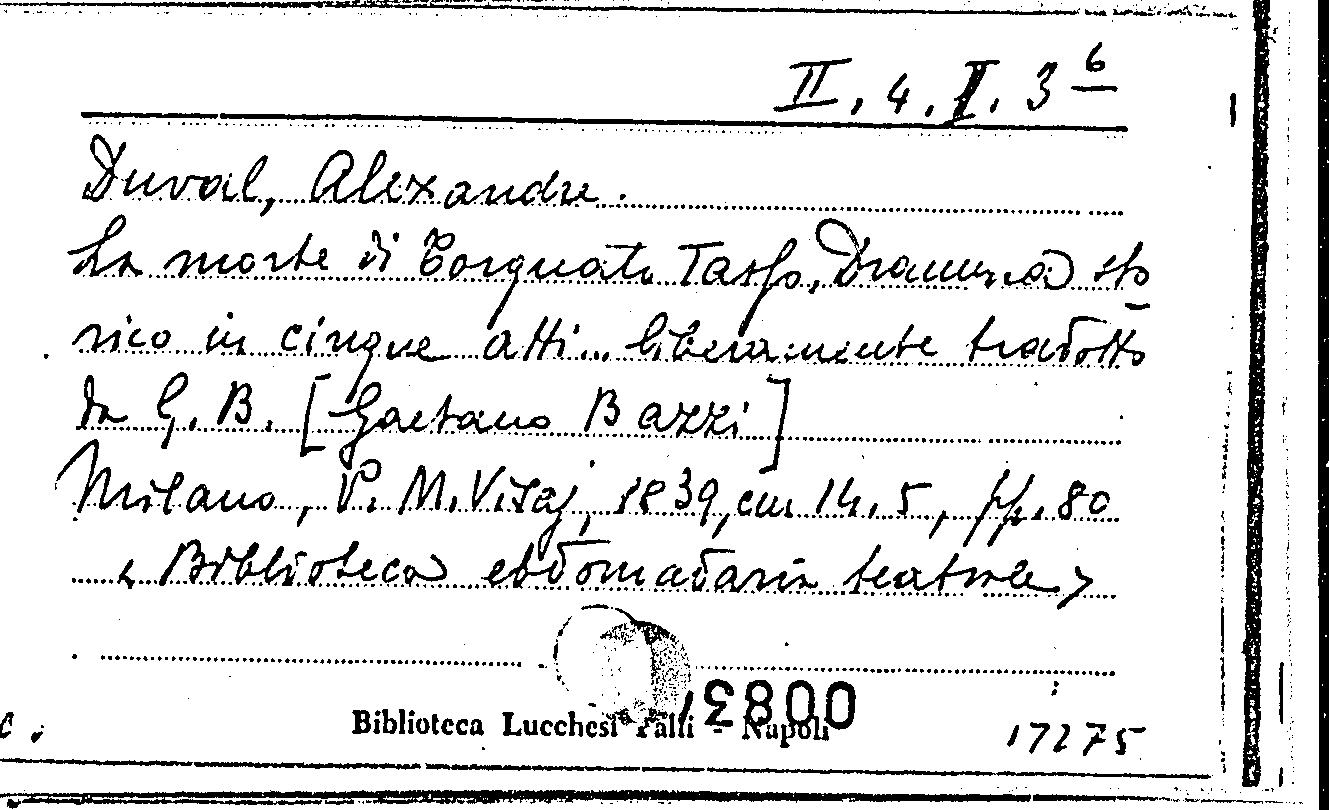 II. 4. I. 3 6
Duval, Alexandre.
La morte di Torquato Tasso. Dramma sto
rico in cinque atti... liberamente tradotto
da G. B. [Gaetano Bazzi]
Milano, P. M. Visaj, 1839, cm 14.5, pp. 80
< Biblioteca ebdomadaria teatrale >
00831
Biblioteca Lucchesi Palli - Napoli
17275